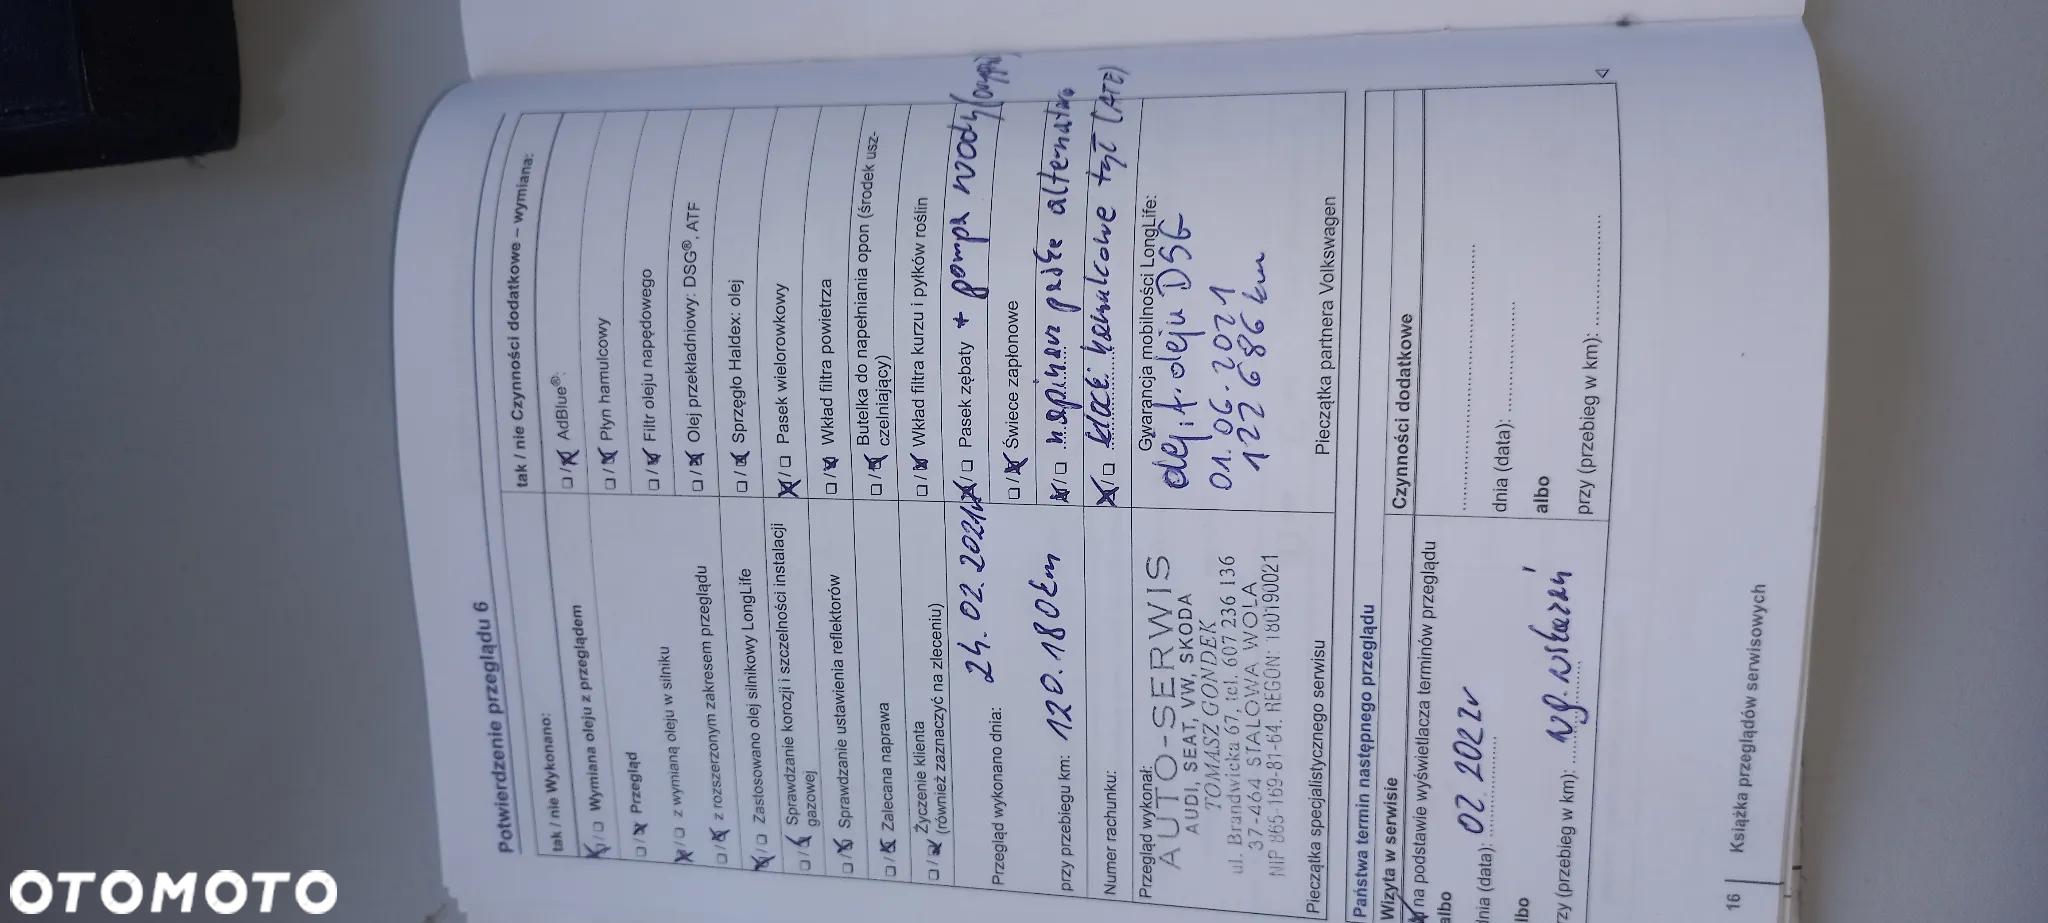 Potwierdzenie przeglądu 6
tak / nie Wykonano:
Wymiana oleju z przeglądem
Przegląd
z wymianą oleju w silniku
z rozszerzonym zakresem przeglądu
Zastosowano olej silnikowy LongLife
Sprawdzanie korozji i szczelności instalacji
gazowej
Sprawdzanie ustawienia reflektorów
Zalecana naprawa
Życzenie klienta
(również zaznaczyć na zleceniu)
Przegląd wykonano dnia: 24.02.2021r
przy przebiegu km: 120.180km
Numer rachunku:
Przegląd wykonał:
AUTO-SERWIS
AUDI, SEAT, VW, SKODA
TOMASZ GONDEK
ul. Brandwicka 67, tel. 607 236 136
37-464 STALOWA WOLA
NIP 865-169-81-64, REGON: 180190021
Pieczątka specjalistycznego serwisu
tak / nie Czynności dodatkowe – wymiana:
AdBlue®:
Płyn hamulcowy
Filtr oleju napędowego
Olej przekładniowy: DSG®, ATF
Sprzęgło Haldex: olej
Pasek wielorowkowy
Wkład filtra powietrza
Butelka do napełniania opon (środek usz-
czelniający)
Wkład filtra kurzu i pyłków roślin
Pasek zębaty + pompa wody
Świece zapłonowe
napinacz paska
klocki hamulcowe tył (ATE)
Gwarancja mobilności LongLife:
olej + f. oleju DSG
01.06.2021
122 686 km
Pieczątka partnera Volkswagen
Państwa termin następnego przeglądu
Wizyta w serwisie
na podstawie wyświetlacza terminów przeglądu
albo
dnia (data): 02.2022r
albo
przy (przebieg w km): wg. wskazań
Czynności dodatkowe
dnia (data):
albo
przy (przebieg w km):
16
Książka przeglądów serwisowych
OTOMOTO